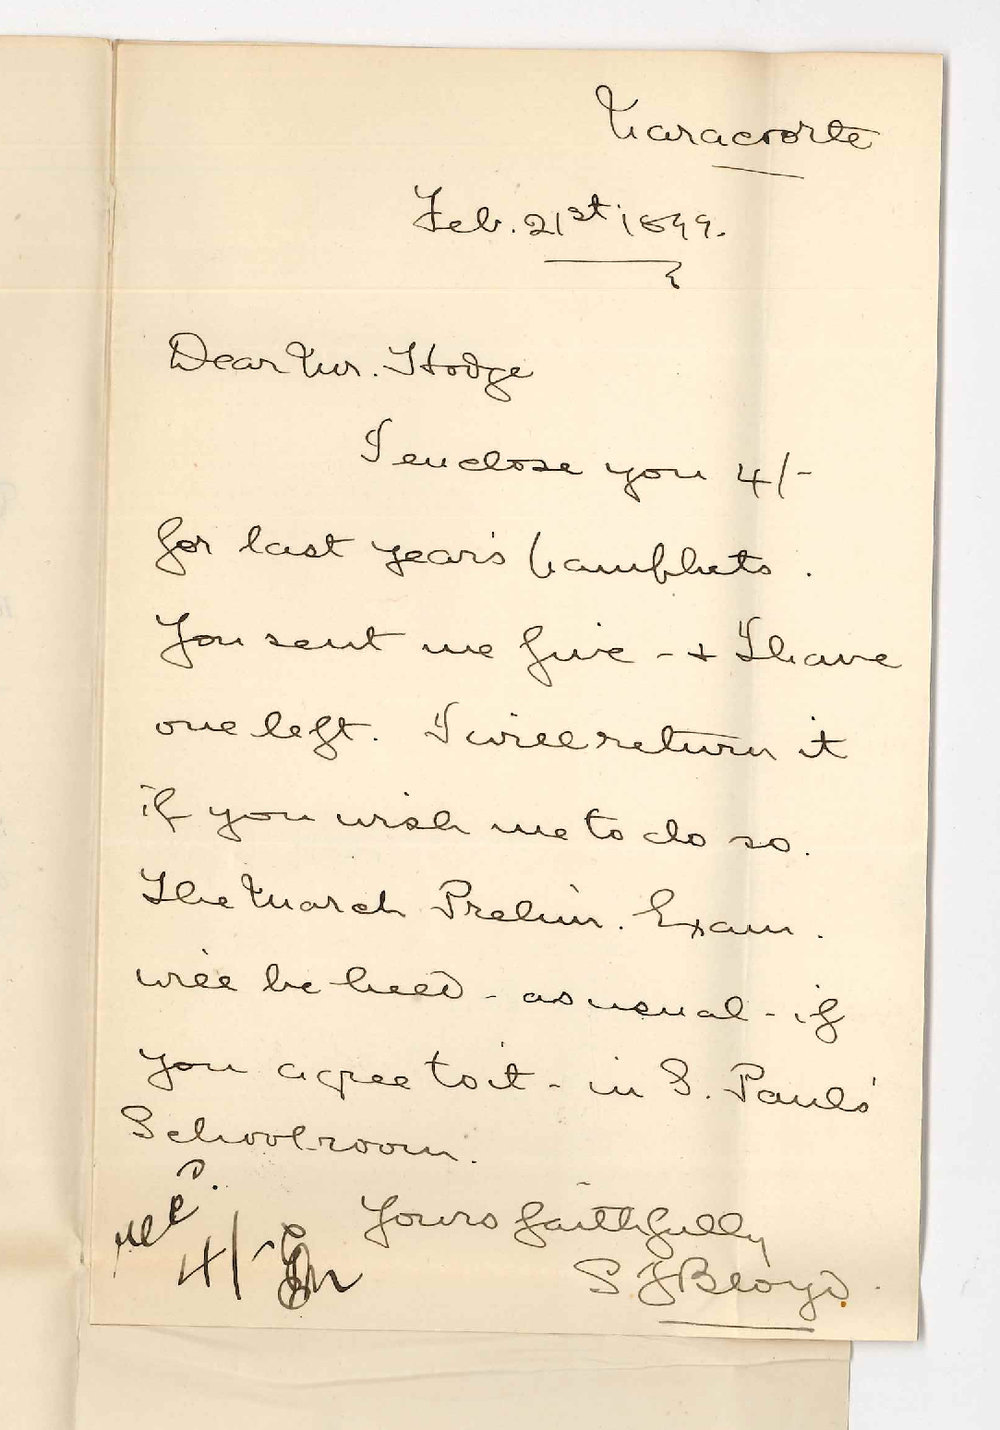 Naracoorte
Feb. 21st 1899.
Dear Mr. Hodge
I enclose you 4/-
for last year's pamphlets.
You sent me five - & I have
one left. I will return it
if you wish me to do so.
The March Prelim. Exam.
will be held - as usual - if
you agree to it - in S. Paul's
Schoolroom.
Yours faithfully
S J Bloyd.
Recd.
4/-